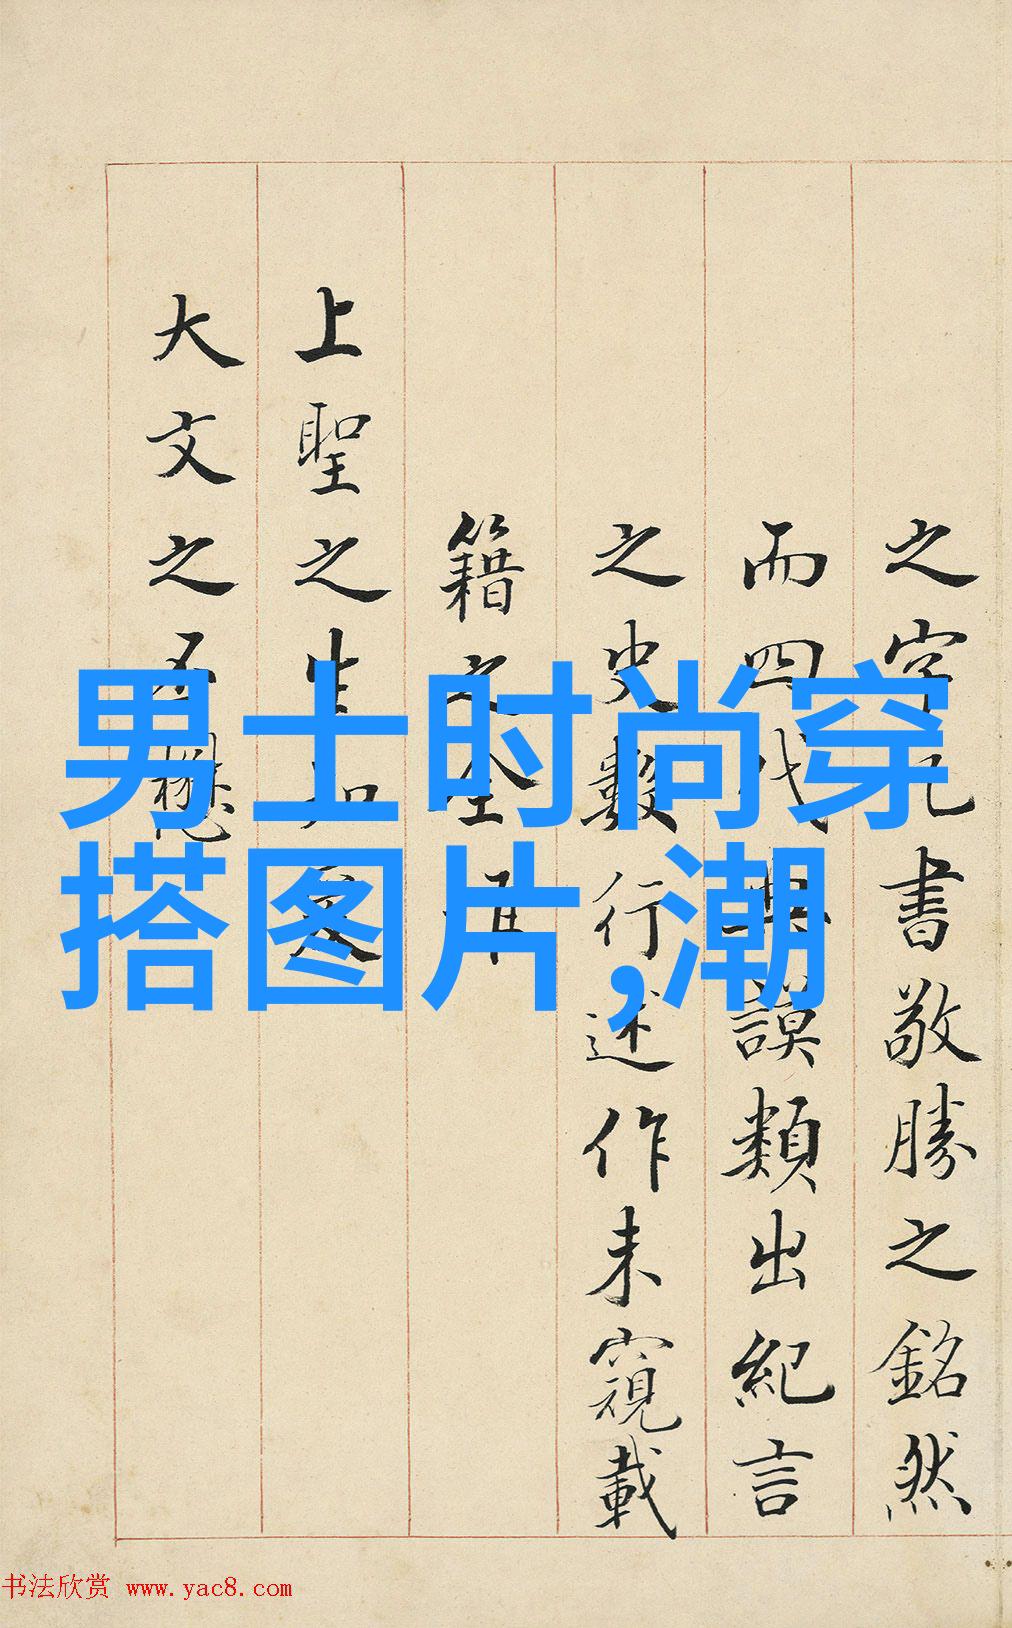 男士时尚穿
搭图片,潮
之字書敬勝之銘然
而四代典謨類出紀言
之史數行述作未窺載
籍之全
上聖之生知
大文之不
书法欣赏 www.yac8.com